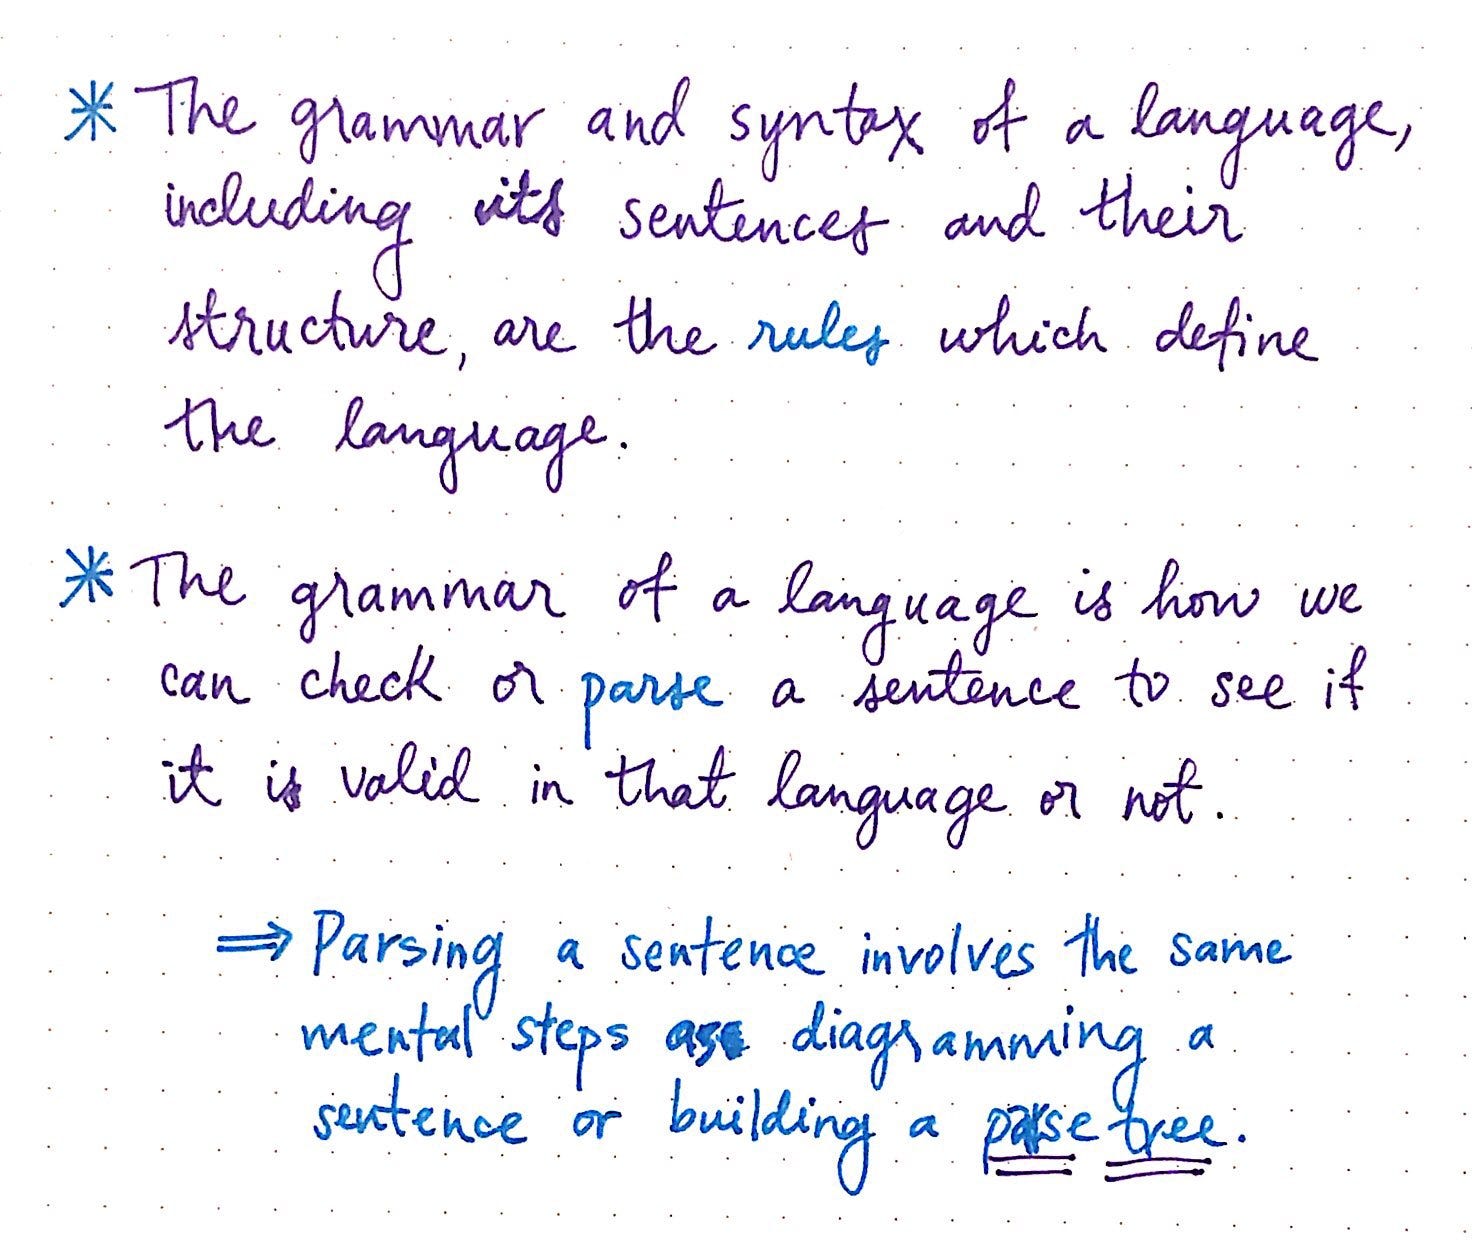 * The grammar and syntax of a language,
including its sentences and their
structure, are the rules which define
the language.
* The grammar of a language is how we
can check or parse a sentence to see if
it is valid in that language or not.
⇒ Parsing a sentence involves the same
mental steps as diagramming a
sentence or building a parse tree.